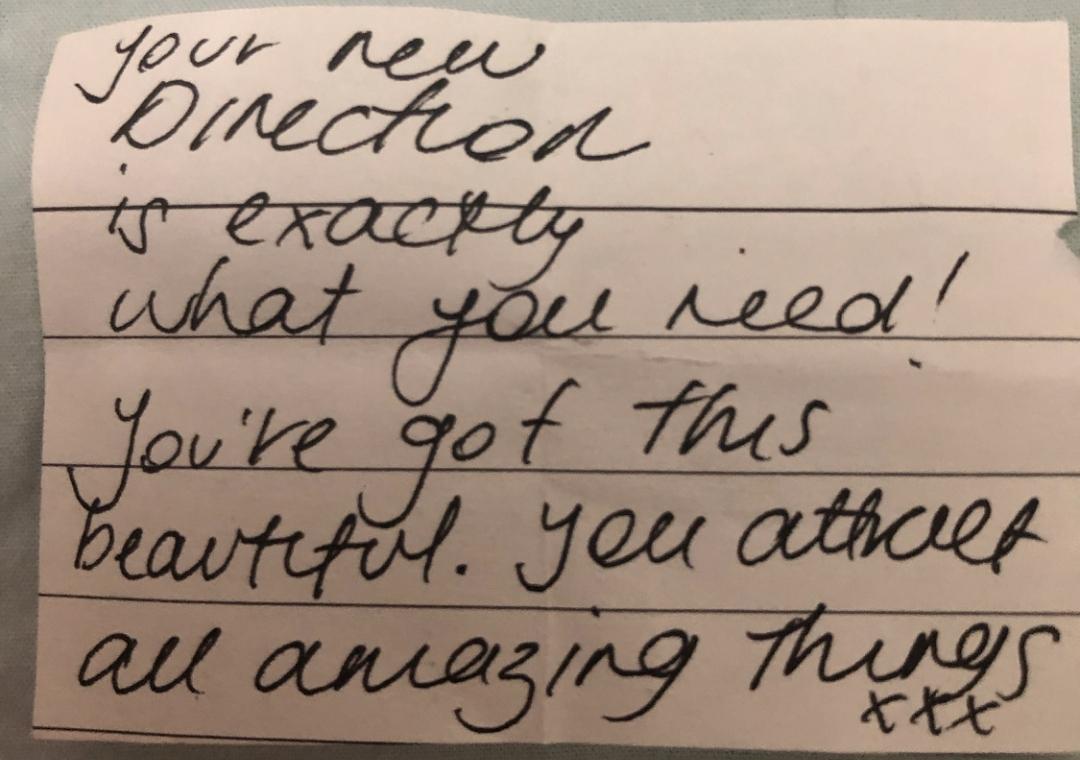 your new
Direction
is exactly
what you need!
You've got this
beautiful. You attract
all amazing things
xxx